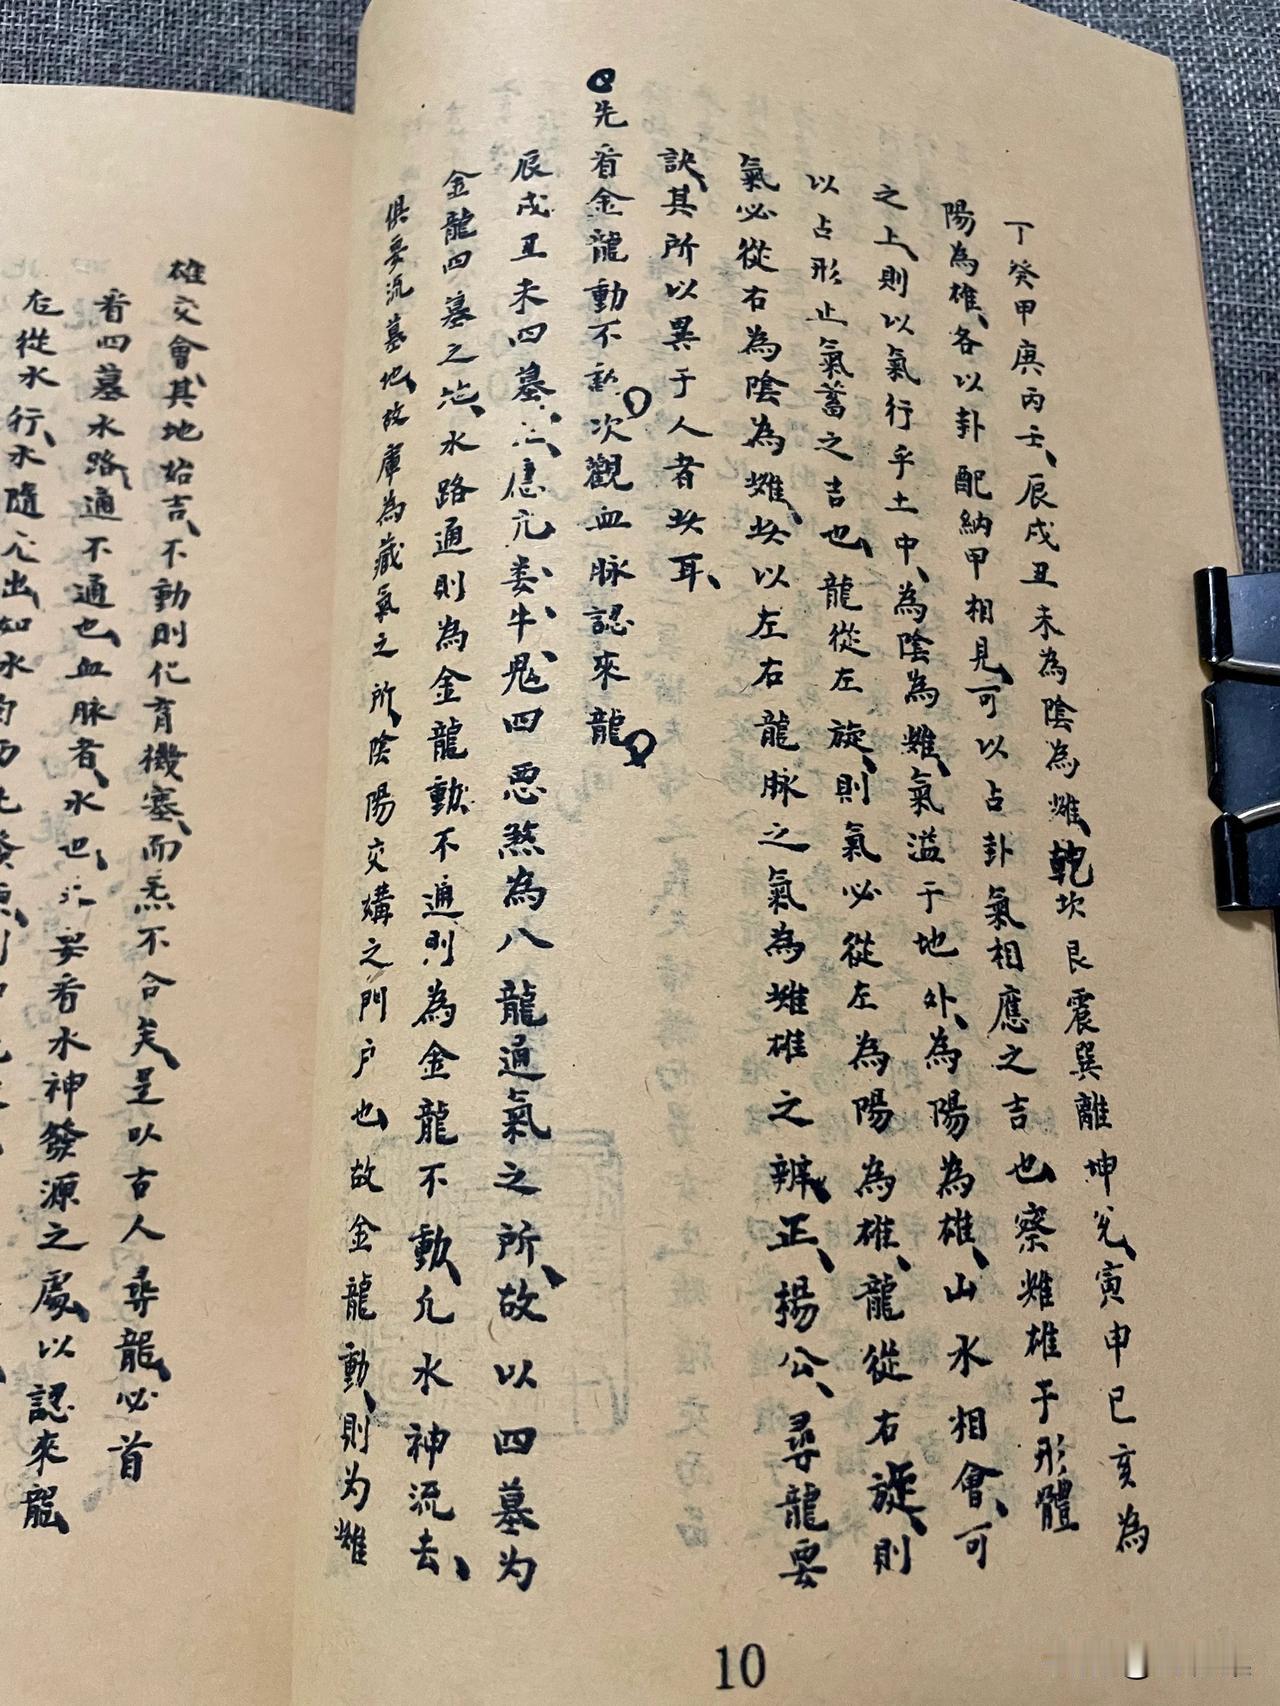 丁癸甲庚丙壬、辰戌丑未為陰為雌、乾坎艮震巽離坤兌、寅申巳亥為
陽為雄、各以卦配納甲相見、可以占卦氣相應之吉也、察雌雄于形體
之上、則以氣行乎土中、為陰為雌、氣溢于地外、為陽為雄、山水相會、可
以占形止氣蓄之吉也、龍從左旋、則氣必從左為陽為雄、龍從右旋、則
氣必從右為陰為雌、此以左右龍脉之氣為雌雄之辨正、楊公、尋龍要
訣、其所以異于人者此耳、
先看金龍動不動次觀血脉認來龍
辰戌丑未四墓、應亢婁牛鬼四惡煞為八龍通氣之所、故以四墓为
金龍四墓之地、水路通則為金龍動不通則為金龍不動、凡水神流去、
俱要流墓地、故庫為藏氣之所、陰陽交媾之門户也故金龍動、則为雌
雄交會、其地始吉、不動則化育機塞、而炁不合矣、是以古人尋龍、必首
看四墓水路通不通也、血脉者、水也、要看水神發源之處、以認來龍
左從水行、水隨出如水